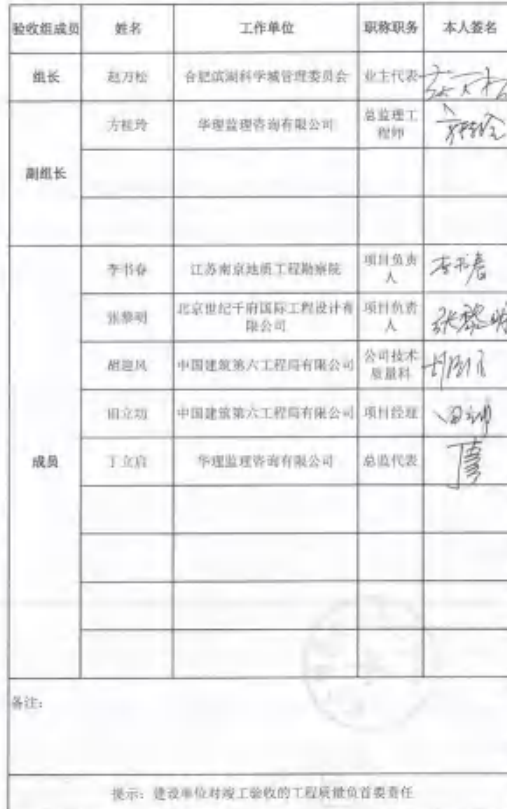 验收组成员 姓名 工作单位 职称职务 本人签名
组长 赵万松 合肥滨湖科学城管理委员会 业主代表
副组长 方桂玲 华理监理咨询有限公司 总监理工
程师
成员 李书春 江苏南京地质工程勘察院 项目负责
人 李书春
张黎明 北京世纪千府国际工程设计有
限公司 项目负责
人 张黎明
胡迎风 中国建筑第六工程局有限公司 公司技术
质量科
田立功 中国建筑第六工程局有限公司 项目经理
丁立启 华理监理咨询有限公司 总监代表
备注:
提示:建设单位对竣工验收的工程质量负首要责任